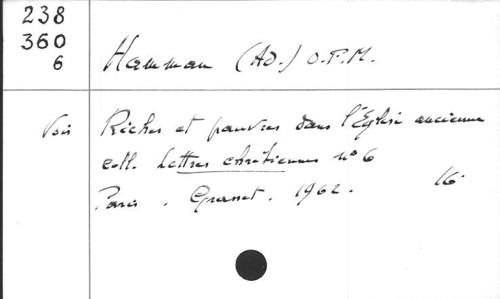 238
360
6
Hamman (Ad.) O.F.M.
Voir Riches et pauvres dans l'Eglise ancienne
coll. Lettres chrétiennes n° 6
Paris. Grasset. 1962. 16°